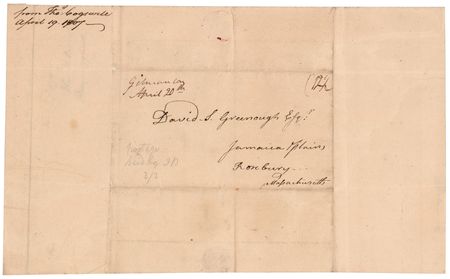 from Thos. Cogswell
April 19. 1807
Gilmanton
April 20th
12½
David S. Greenough Esqr.
Jamaica Plains
Roxbury
Massachusetts
2/2